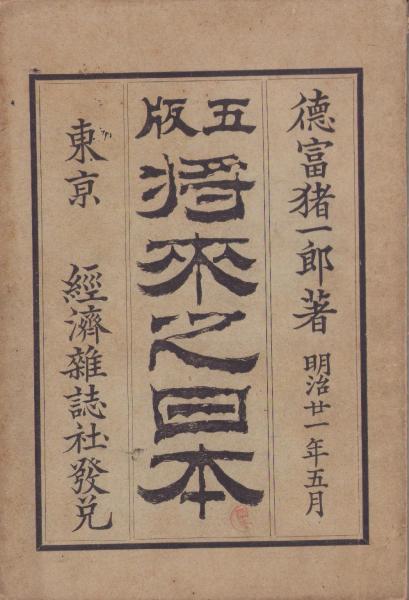 德富猪一郎著 明治廿一年五月
五版
將來之日本
東京 經濟雜誌社發兌